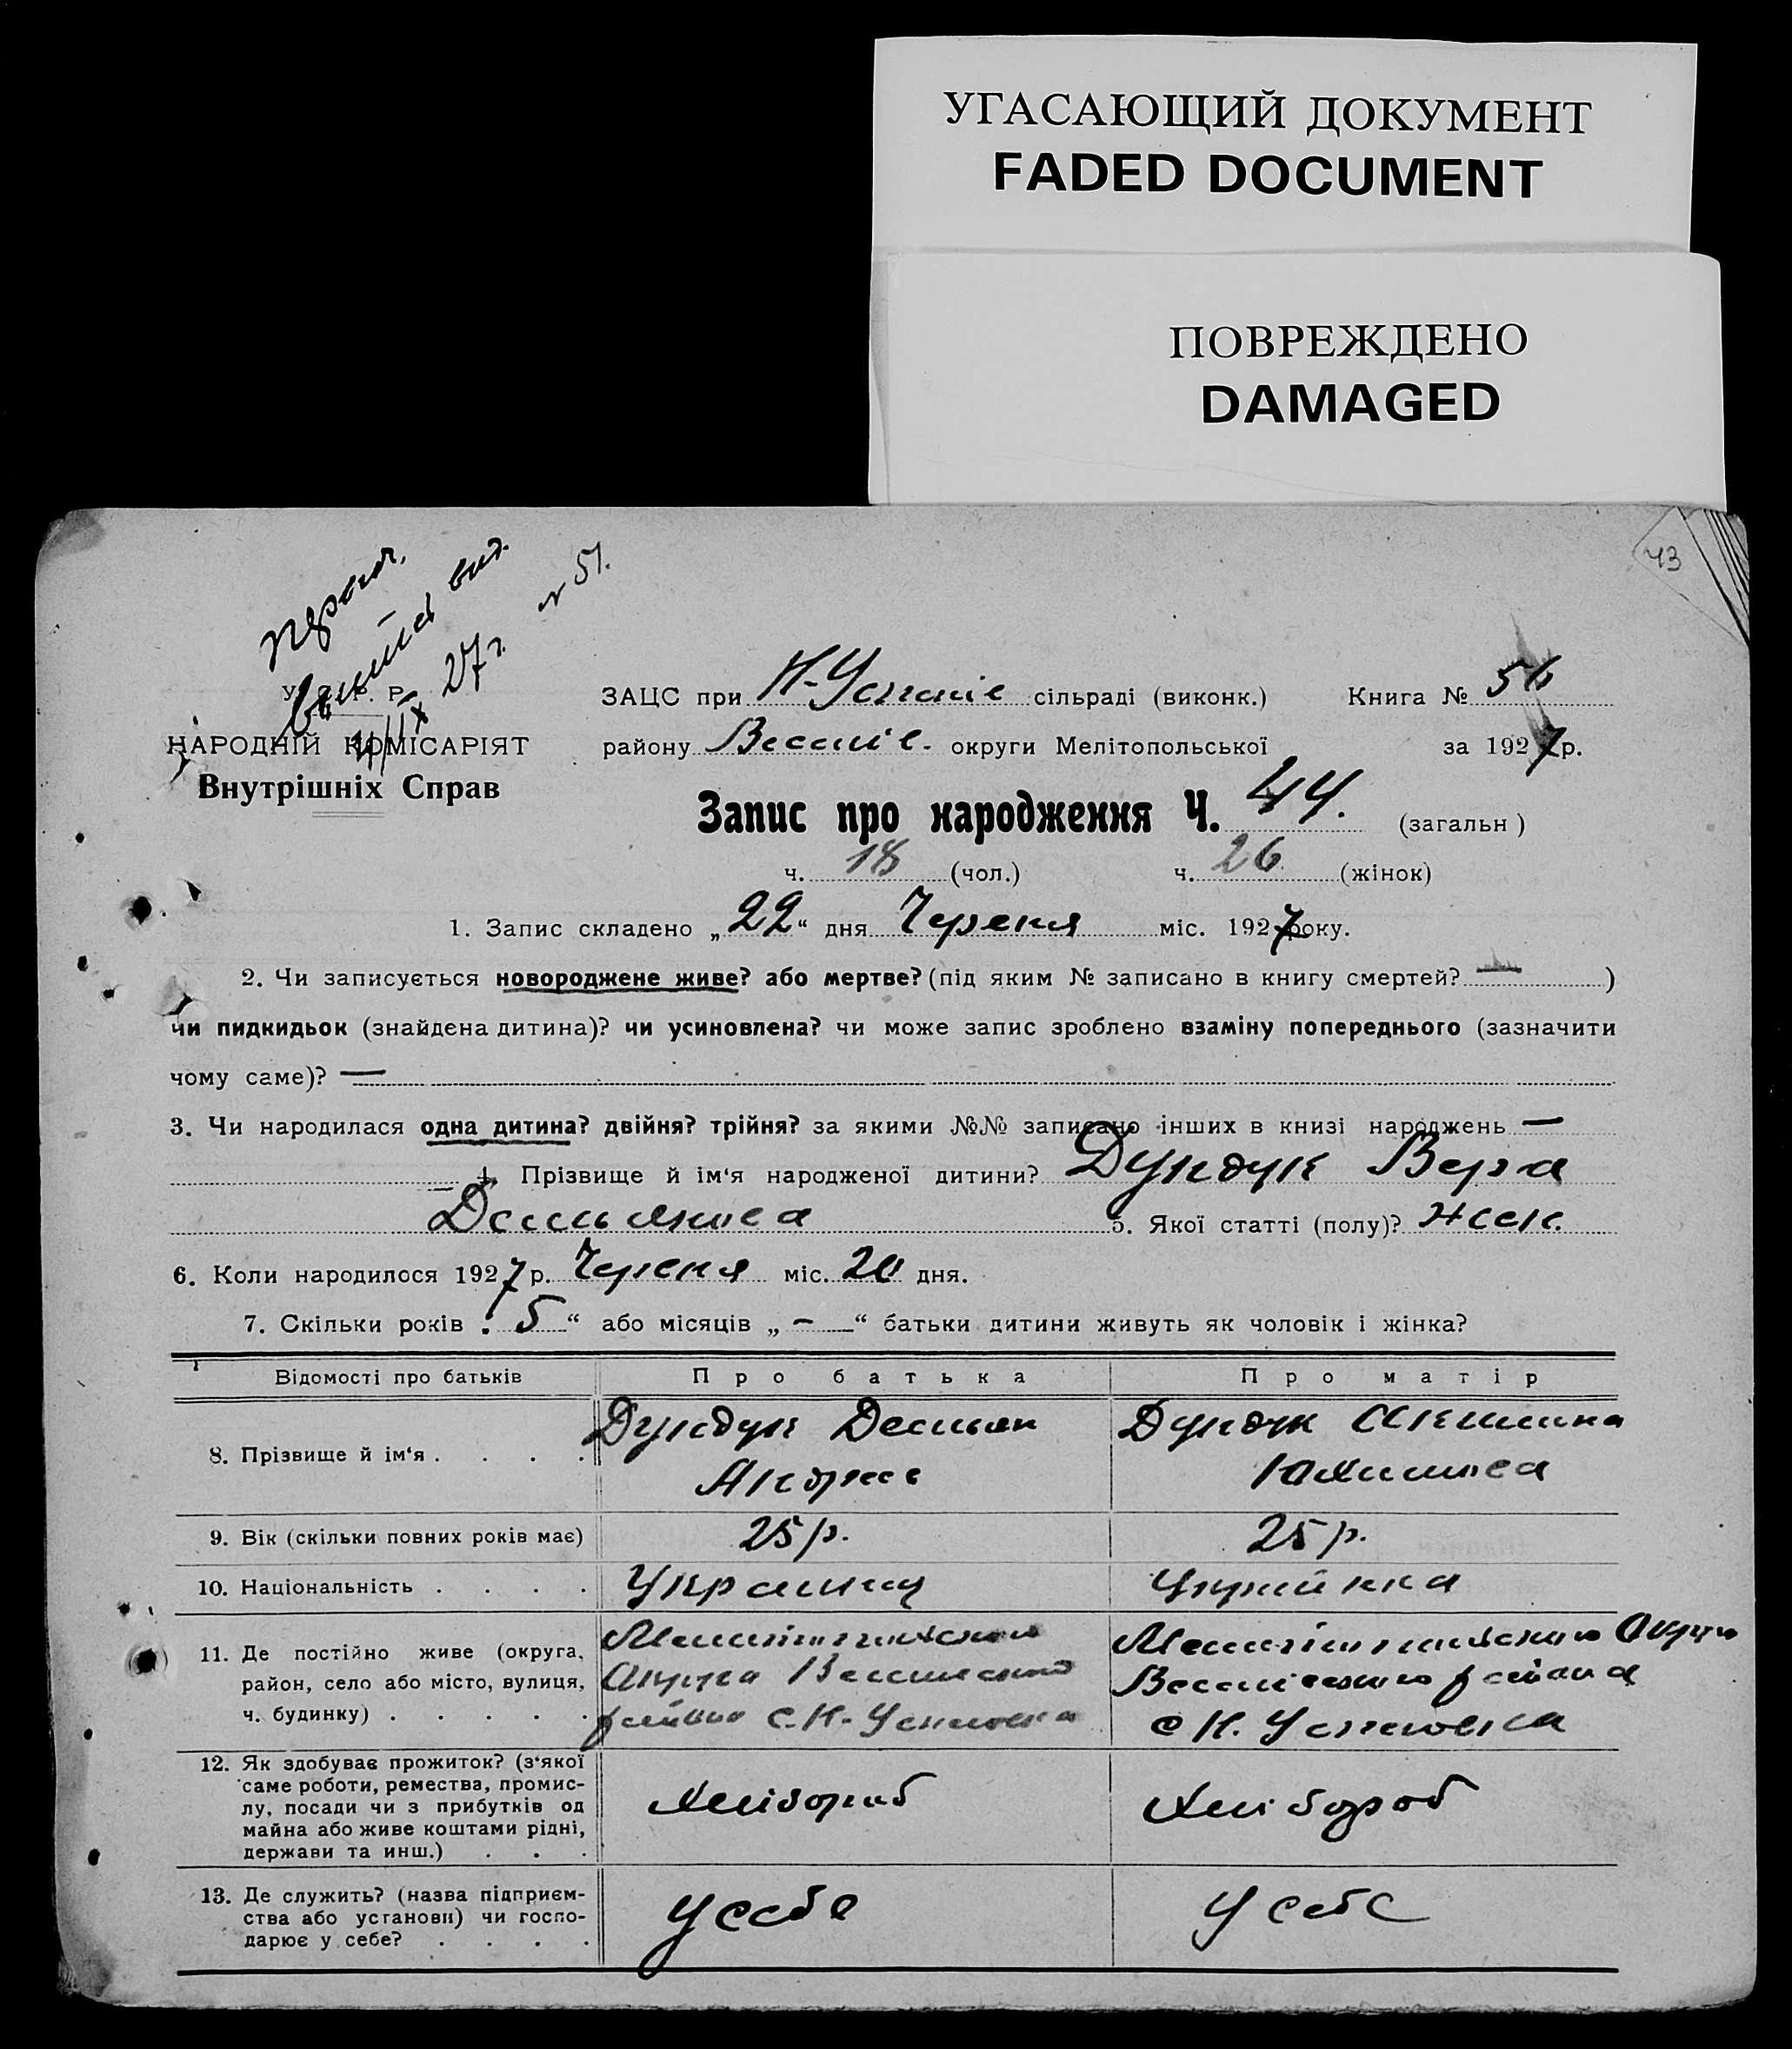 УГАСАЮЩИЙ ДОКУМЕНТ
FADED DOCUMENT
ПОВРЕЖДЕНО
DAMAGED
43
№ 51.
27 г.
У. С. Р. Р.
НАРОДНІЙ КОМІСАРІЯТ
Внутрішніх Справ
ЗАЦС при Н-Успенів сільраді (виконк.) Книга № 56
району Веселів. округи Мелітопольської за 1927 р.
Запис про народження Ч. 44. (загальн)
ч. 18 (чол.) ч. 26 (жінок)
1. Запис складено „22“ дня Червня міс. 1927 року.
2. Чи записується новороджене живе? або мертве? (під яким № записано в книгу смертей? — )
чи пидкидьок (знайдена дитина)? чи усиновлена? чи може запис зроблено взаміну попереднього (зазначити
чому саме)? —
3. Чи народилася одна дитина? двійня? трійня? за якими №№ записано інших в книзі народжень —
4. Прізвище й ім‘я народженої дитини? Дундук Вера
Демьянова 5. Якої статті (полу)? жен.
6. Коли народилося 1927 р. Червня міс. 20 дня.
7. Скільки років „5“ або місяців „ — “ батьки дитини живуть як чоловік і жінка?
Відомості про батьків Про батька Про матір
8. Прізвище й ім‘я . . . . Дундук Демьян Дундук
Андрее Юхимова
9. Вік (скільки повних років має) 25 р. 25 р.
10. Національність . . . . Украинец Украйнка
11. Де постійно живе (округа, Мелитопольской Мелитопольской Округи
район, село або місто, вулиця, Округа Веселовского Веселовского района
ч. будинку) . . . . . района с. Н-Успеновка с Н. Успеновка
12. Як здобуває прожиток? (з‘якої
саме роботи, ремества, промис-
лу, посади чи з прибутків од Хлібороб Хлібороб
майна або живе коштами рідні,
держави та инш.) . . .
13. Де служить? (назва підприєм-
ства або установи) чи госпо- У себе У себе
дарює у себе? . . . .